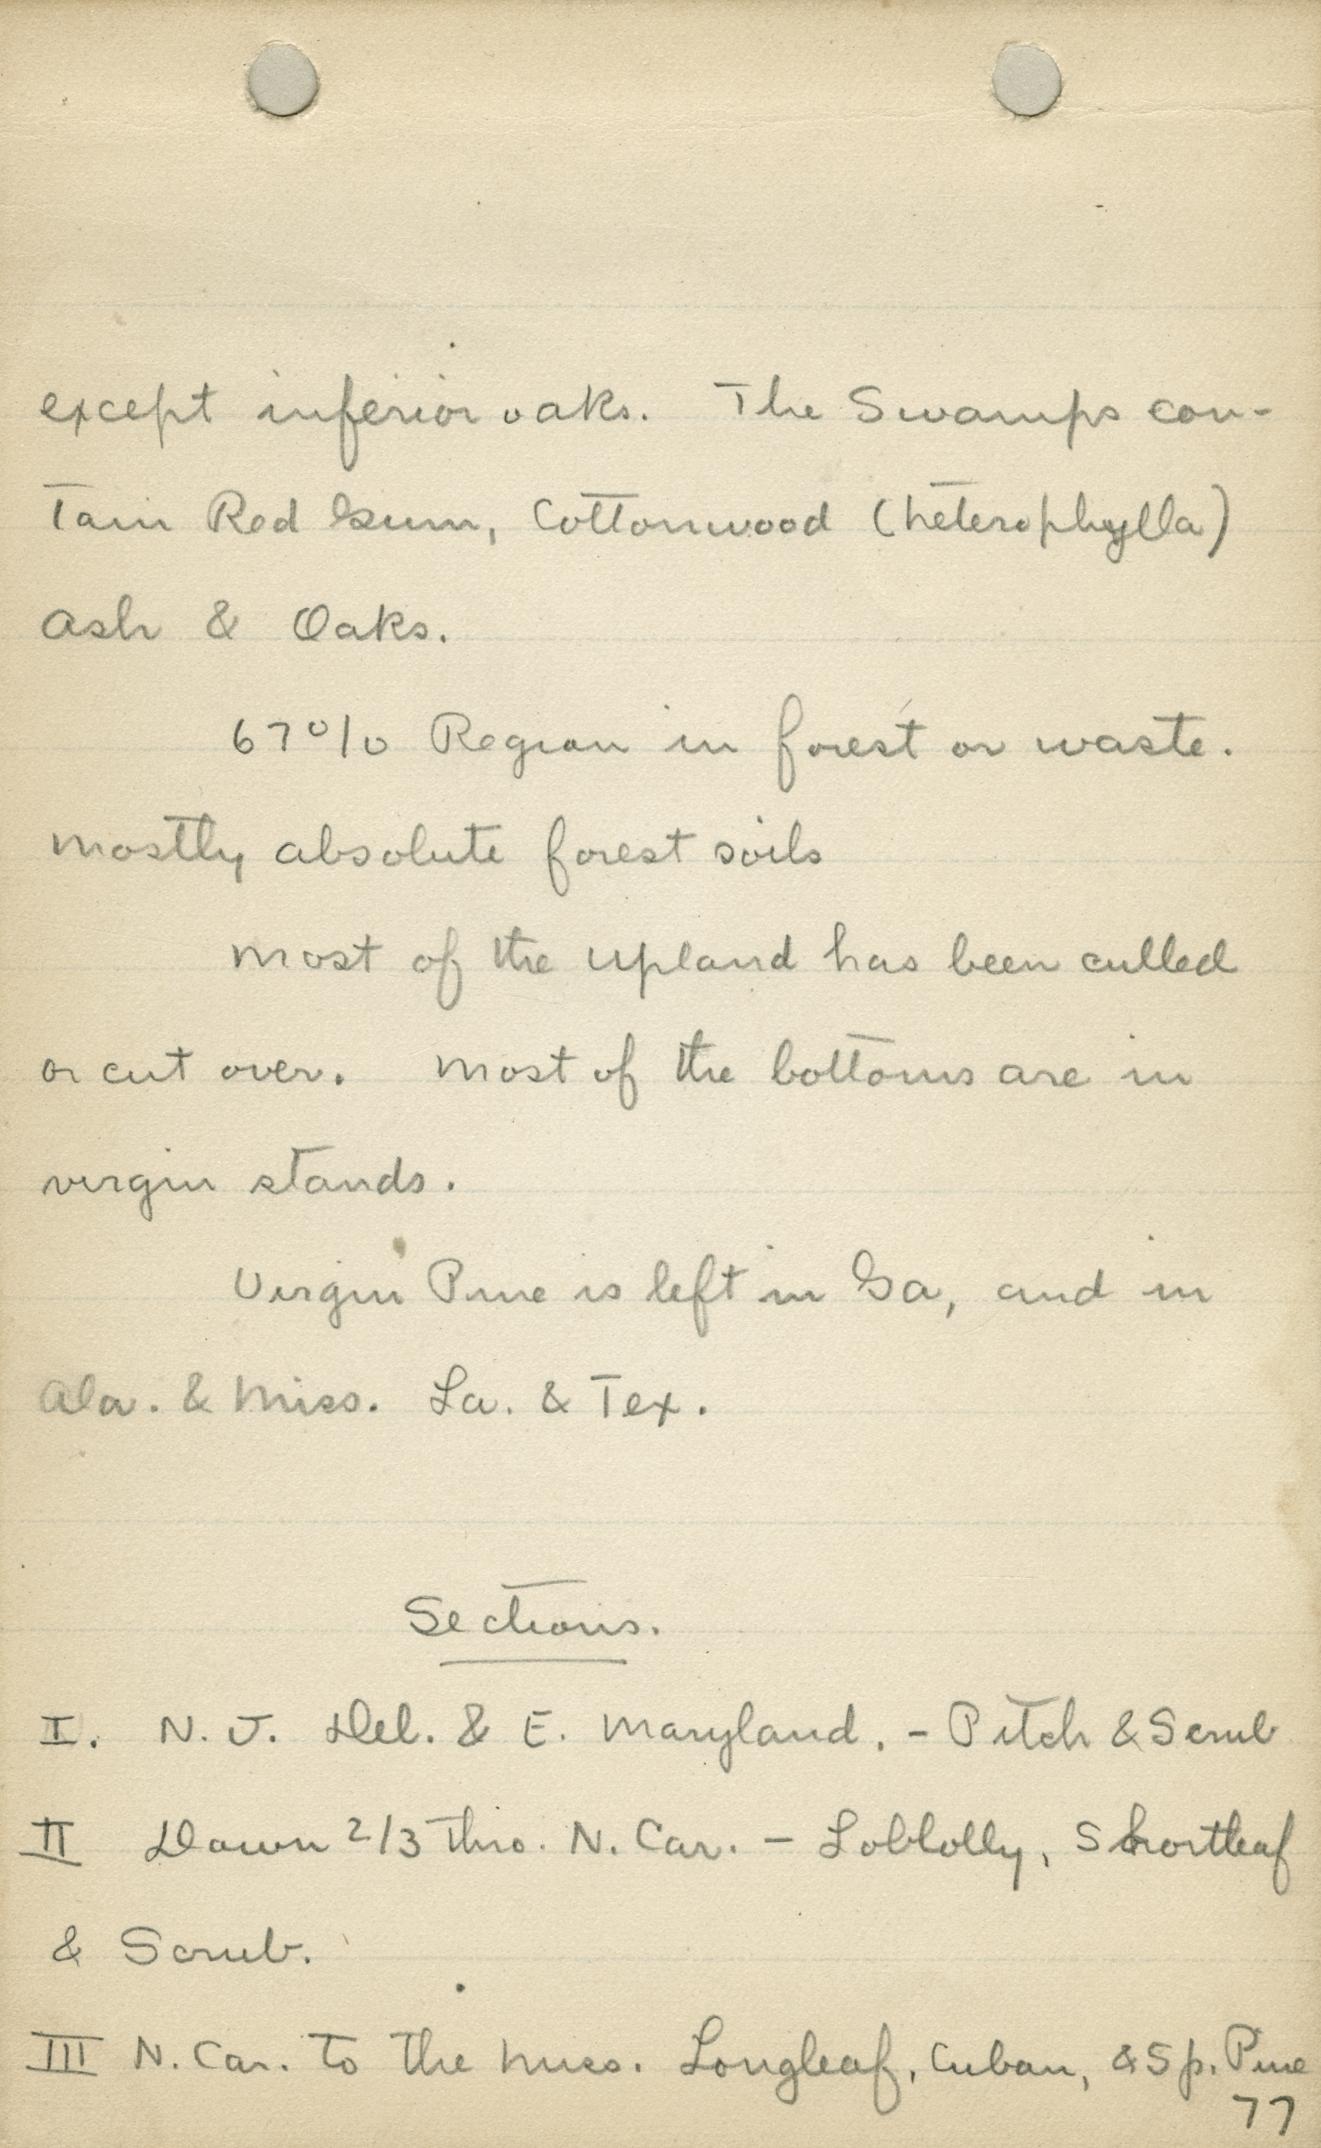 except inferior oaks. The Swamps con-
tain Red Gum, Cottonwood (heterophylla)
Ash & Oaks.
67% Region in forest or waste.
Mostly absolute forest soils
Most of the upland has been culled
or cut over. Most of the bottoms are in
virgin stands.
Virgin Pine is left in Ga, and in
Ala. & Miss. La. & Tex.
Sections.
I. N. J. Del. & E. Maryland. - Pitch & Scrub
II Down 2/3 thro. N. Car. - Loblolly, Shortleaf
& Scrub.
III N. Car. to the Miss. Longleaf, Cuban, & Sp. Pine
77